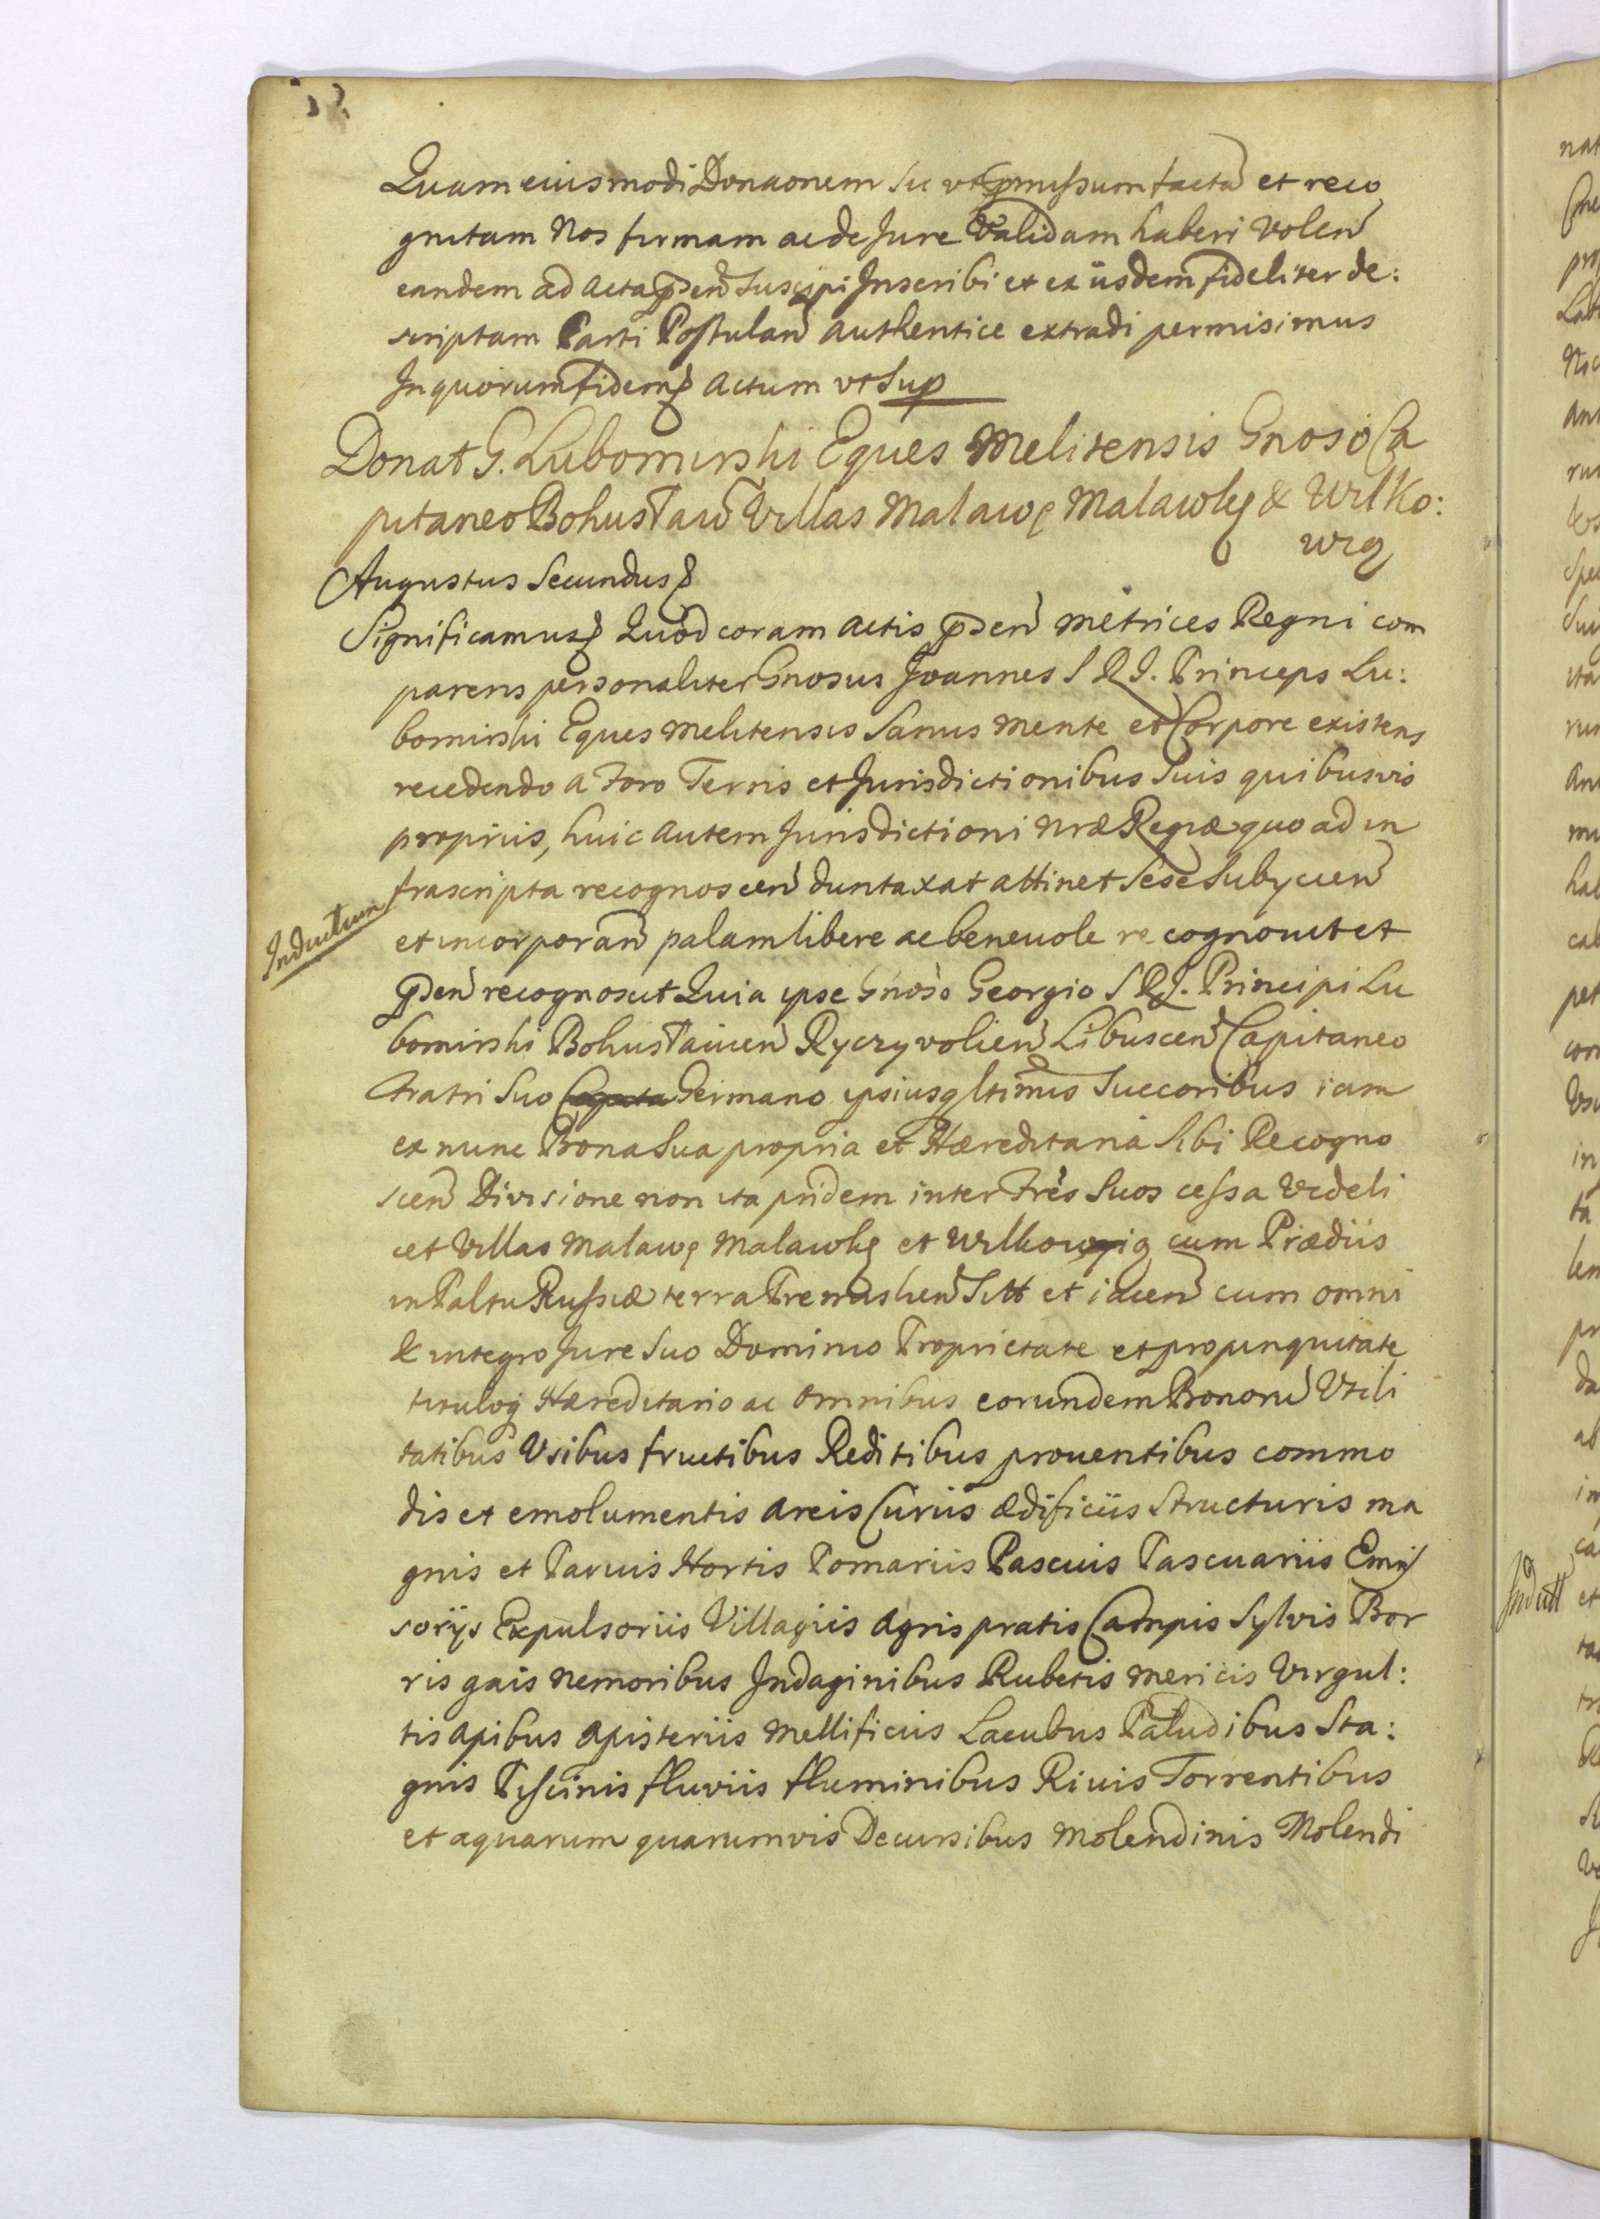 Quam eiusmodi Donaonem sic vt pmissum facta et reco
gnitam Nos firmam ac de Jure Validam haberi Volen
eandem ad Acta pden Suscipi Inscribi et ex iisdem fideliter de:
scriptam Parti Postulan authentice extradi permisimus
In quorum fidem Actum vt Sup
Donat G. Lubomirski Eques Melitensis Gnoso Ca
pitaneo Bohuslaw Villas Malawę Malawkę & Wilko:
wię
Augustus Secundus
Significamus Quod coram Actis pden Metrices Regni com
parens personaliter Gnosus Joannes S R I. Princeps Lu:
bomirski Eques Melitensis Sanus mente et Corpore existens
recedendo a Foro Terris et Jurisdictionibus Suis quibusvis
propriis, huic autem Jurisdictioni nræ Regiæ quo ad in
frascripta recognoscen duntaxat attinet Sese Subycien
Inductum
et incorporan palam libere ac beneuole recognouit et
pden recognoscit Quia ipse Gnoso Georgio S R I. Principi Lu
bomirski Bohuslauien Ryczyvolien Libuscen Capitaneo
Fratri Suo Germano ipsiusq ltimis Succoribus iam
ex nunc Bona Sua propria et Hæreditaria Sibi Recogno
scen Divisione non ita pridem inter Frès Suos cessa Videli
cet Villas Malawę Malawkę et Wilkowyią cum Prædiis
in Paltu Russiæ terra Premislien Sitt et iacen cum omni
& integro Jure Suo Dominio Proprietate et propinquitate
tituloq Hæreditario ac omnibus eorundem Bonoru Vtili
tatibus Vsibus fructibus Reditibus prouentibus commo
dis et emolumentis areis Curiis ædificiis Structuris ma
gnis et Paruis Hortis Pomariis Pascuis Pascuariis Emis
sorijs Expulsoriis Villagiis Agris pratis Campis Sylvis Bor
ris gais nemoribus Indaginibus Rubetis mericis Virgul:
tis apibus apisteriis Mellificiis Lacubus Paludibus Sta:
gnis Piscinis fluviis fluminibus Riuis Torrentibus
et aquarum quarumvis Decursibus Molendinis Molendi